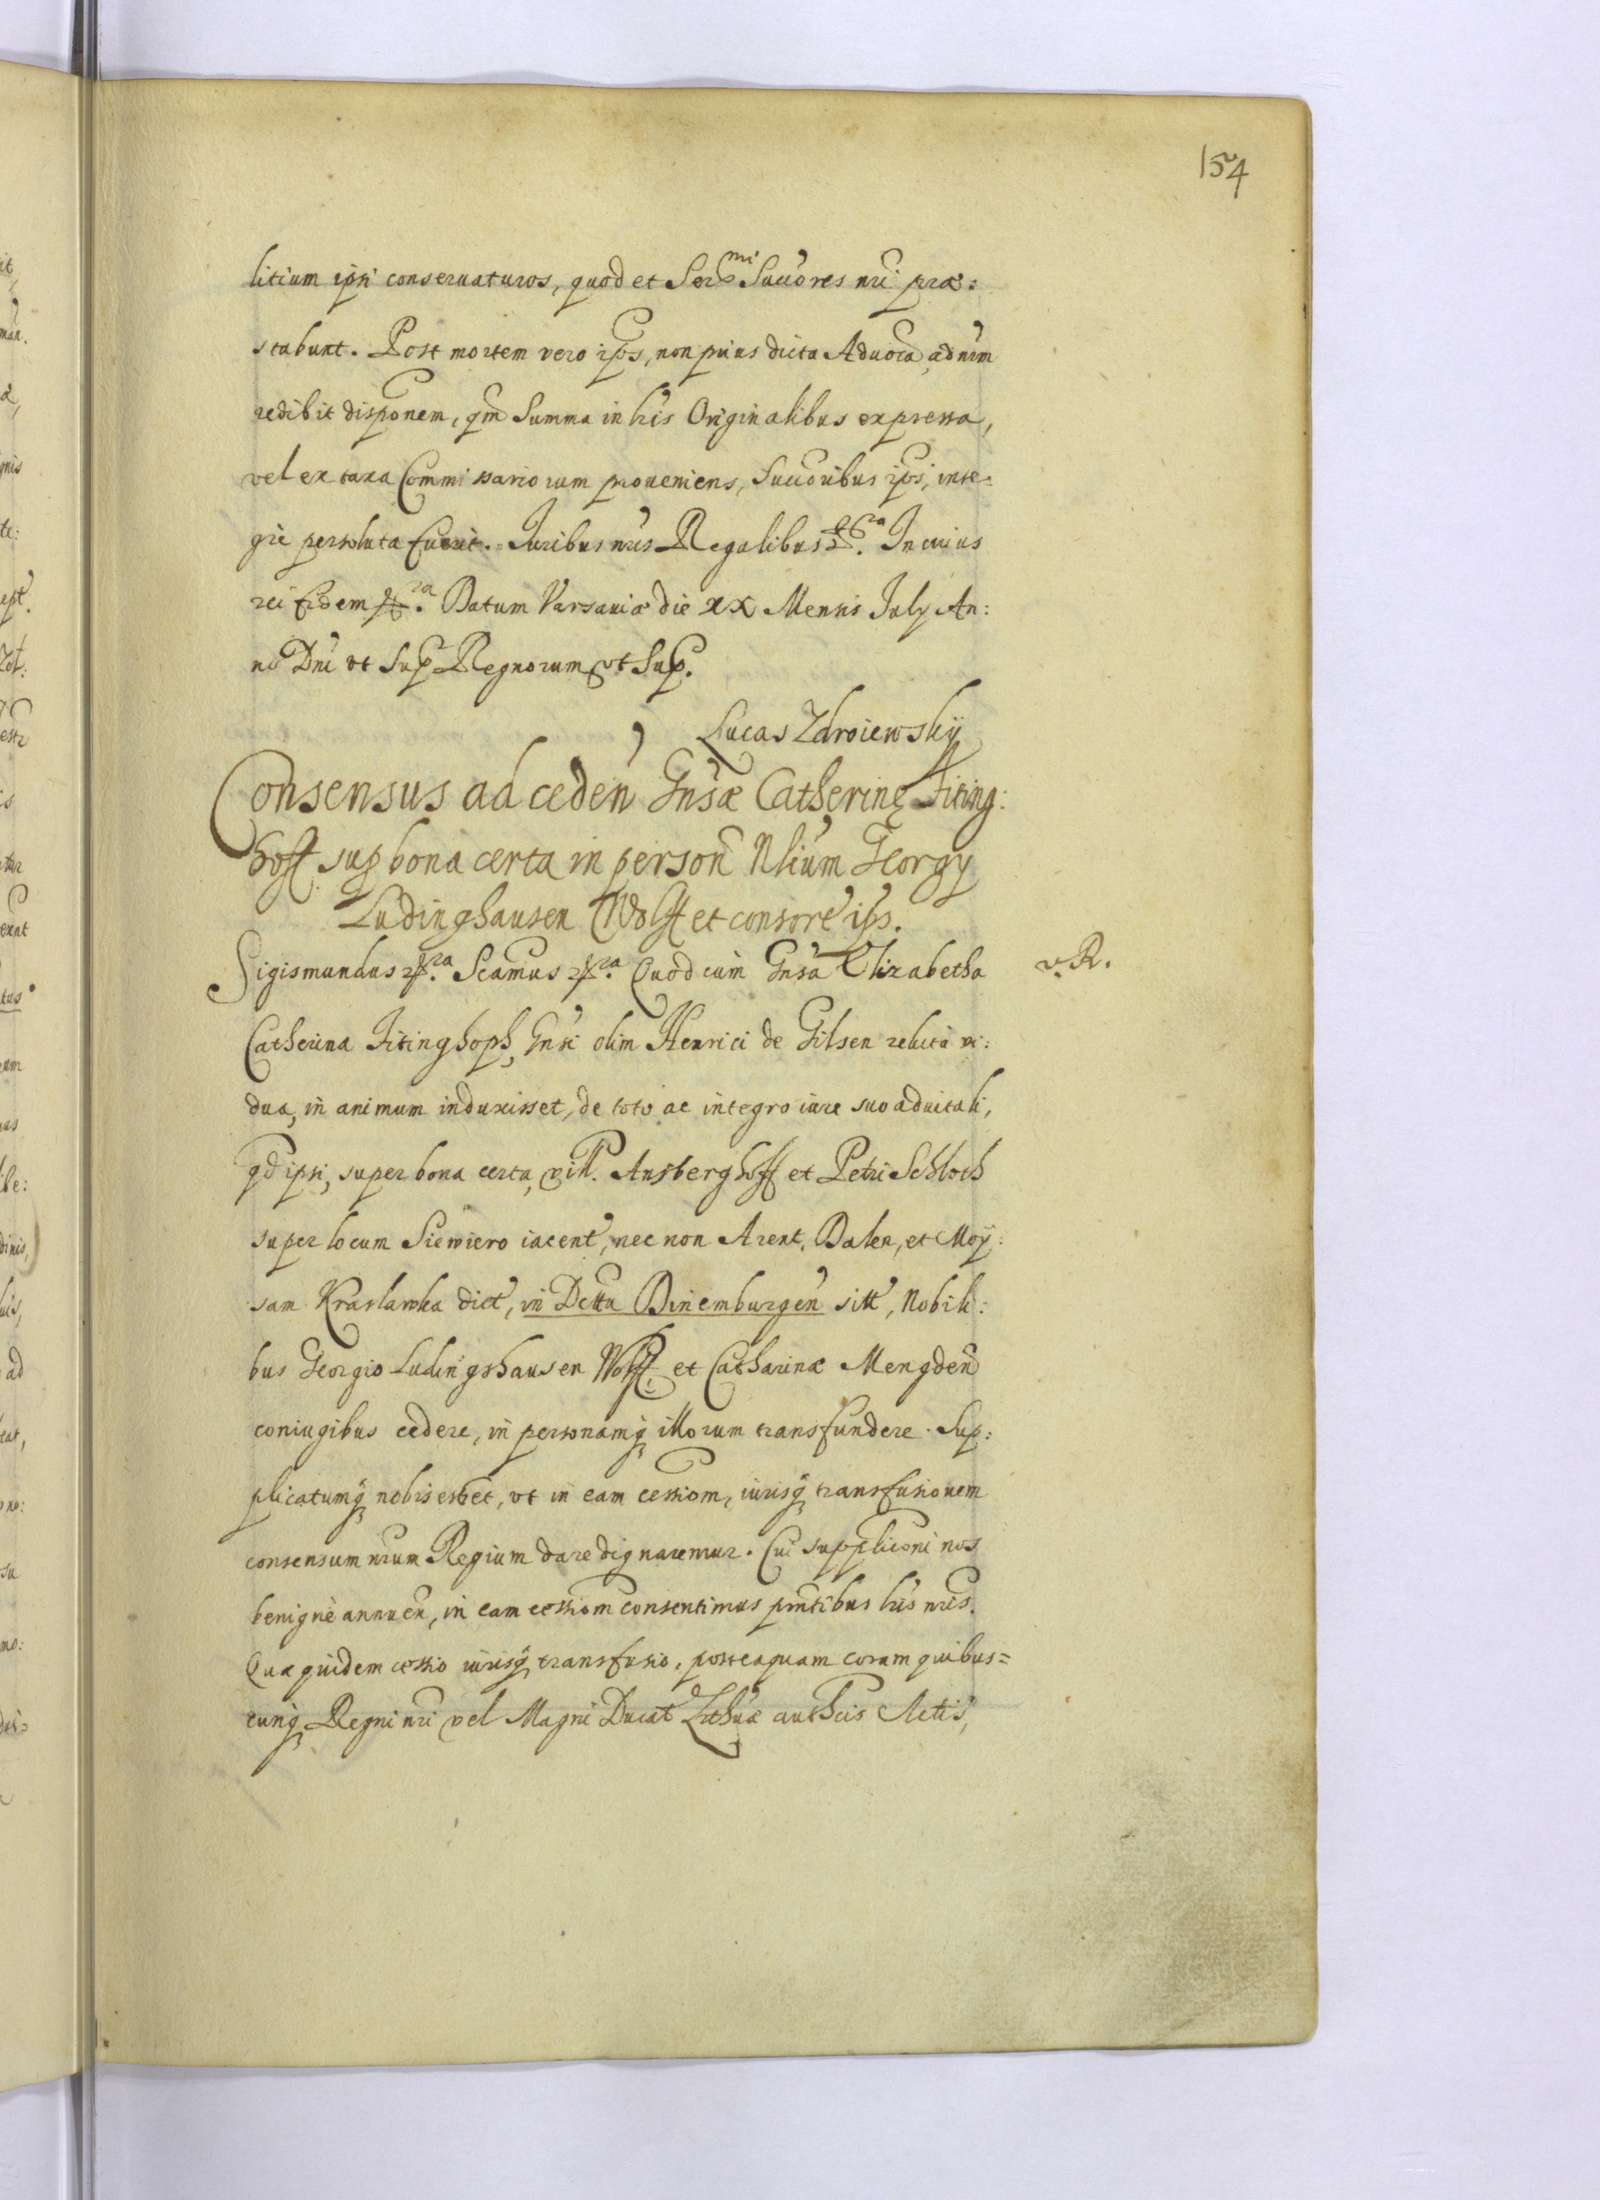 154
litium ipsi conseruaturos, quod et Ser:mi Succores nri præ:
stabunt. Post mortem vero ips, non prius dicta Aduocã, ad nrm
redibit disponem, qm Summa in his Originalibus expressa,
vel ex taxa Commissariorum proueniens, Succoribus ips, inte:
gre persoluta fuerit. Juribus nris Regalibus &ra. In cuius
rei fidem &ra. Datum Varsauiæ die XX Mensis July An:
no Dni vt Sup Regnorum vt Sup.
Lucas Zdroiewsky
Consensus ad ceden Gnsæ Catherinę Fiting:
hoff sup bona certa in person Nlium Georgy
Ludinghausen Wolff et consort ips.
Sigismundus &ra. Scamus &ra. Quod cum Gnsa Elizabetha
v. R.
Catherina Fitinghoph, Gnsi olim Henrici de Gilsen relicta vi:
dua, in animum induxisset, de toto ac integro iure suo aduitali,
qd ipsi, super bona certa, vill. Ansberghoff et Petri Schloch
super locum Siewiero iacent, nec non Arent, Dalen, et Moy:
sam Kraslawka dict, in Dcttu Dinemburgen sitt, Nobili:
bus Georgio Ludingshausen Wolff, et Catharinæ Mengden
coniugibus cedere, in personamq illorum transfundere. Sup:
plicatumq nobis esset, vt in eam cessiom, iurisq transfusionem
consensum nrum Regium dare dignaremur. Cui suppliconi nos
benignè annuen, in eam cessiom consentimus pntibus lris nris.
Quæ quidem cessio iurisq transfusio, posteaquam coram quibus=
cunq Regni nri vel Magni Ducat Lithuæ authcis Actis,